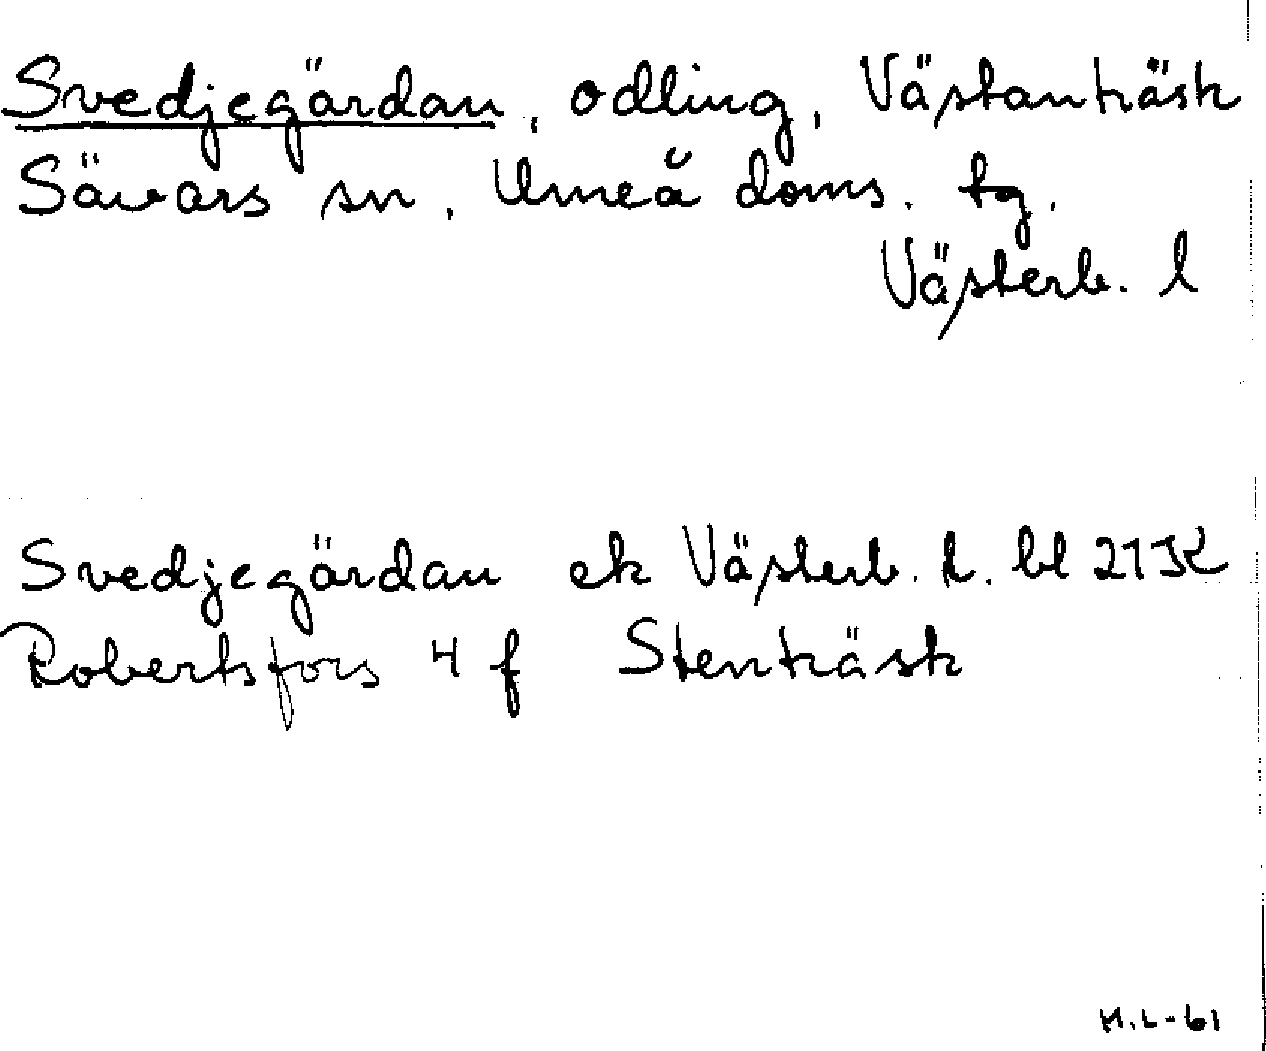 Svedjegärdan, odling, Västanträsk
Sävars sn, Umeå doms. tg.
Västerb. l
Svedjegärdan ek Västerb. l. bl 21 K
Robertsfors 4 f Stenträsk
H.L-61